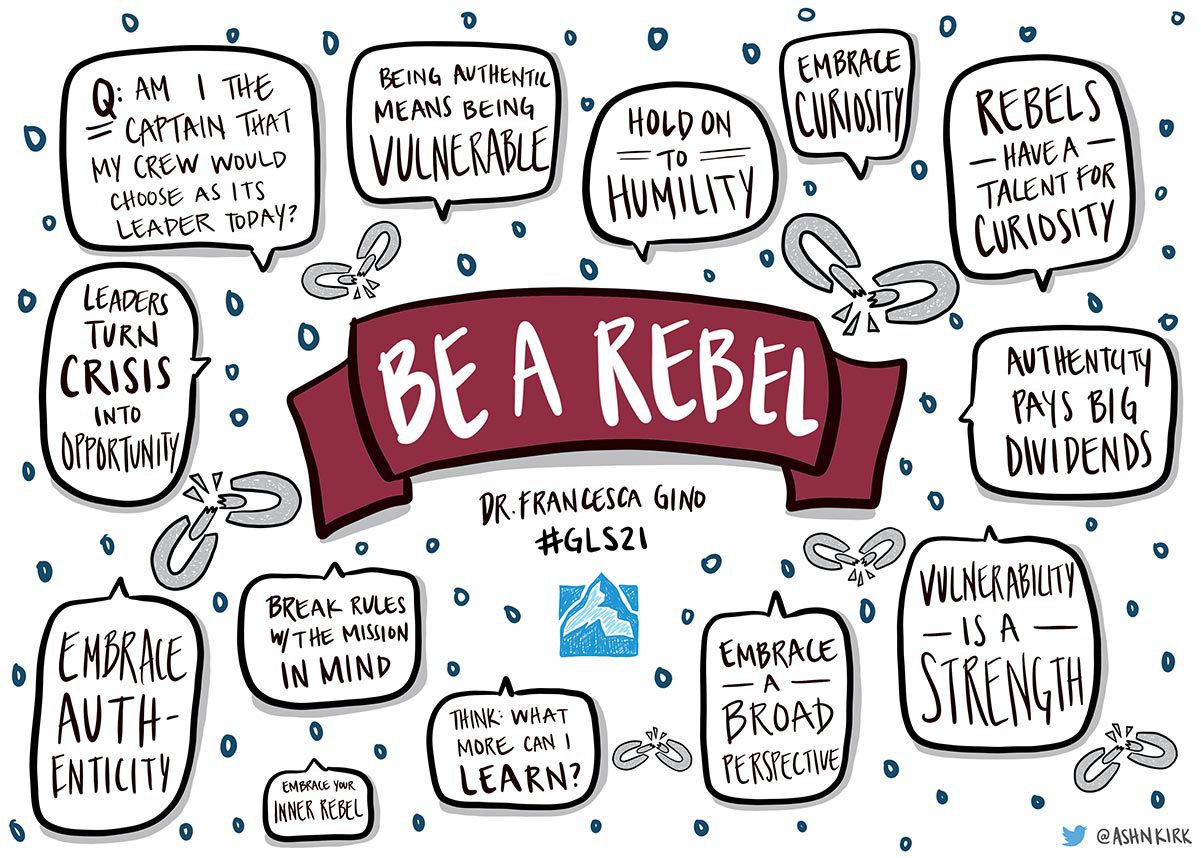 Q: AM I THE
CAPTAIN THAT
MY CREW WOULD
CHOOSE AS ITS
LEADER TODAY?
BEING AUTHENTIC
MEANS BEING
VULNERABLE
HOLD ON
TO
HUMILITY
EMBRACE
CURIOSITY
REBELS
HAVE A
TALENT FOR
CURIOSITY
LEADERS
TURN
CRISIS
INTO
OPPORTUNITY
BE A REBEL
DR. FRANCESCA GINO
#GLS21
AUTHENTCITY
PAYS BIG
DIVIDENDS
EMBRACE
AUTH-
ENTICITY
BREAK RULES
W/THE MISSION
IN MIND
EMBRACE YOUR
INNER REBEL
THINK: WHAT
MORE CAN I
LEARN?
EMBRACE
A
BROAD
PERSPECTIVE
VULNERABILITY
IS A
STRENGTH
@ASHNKIRK